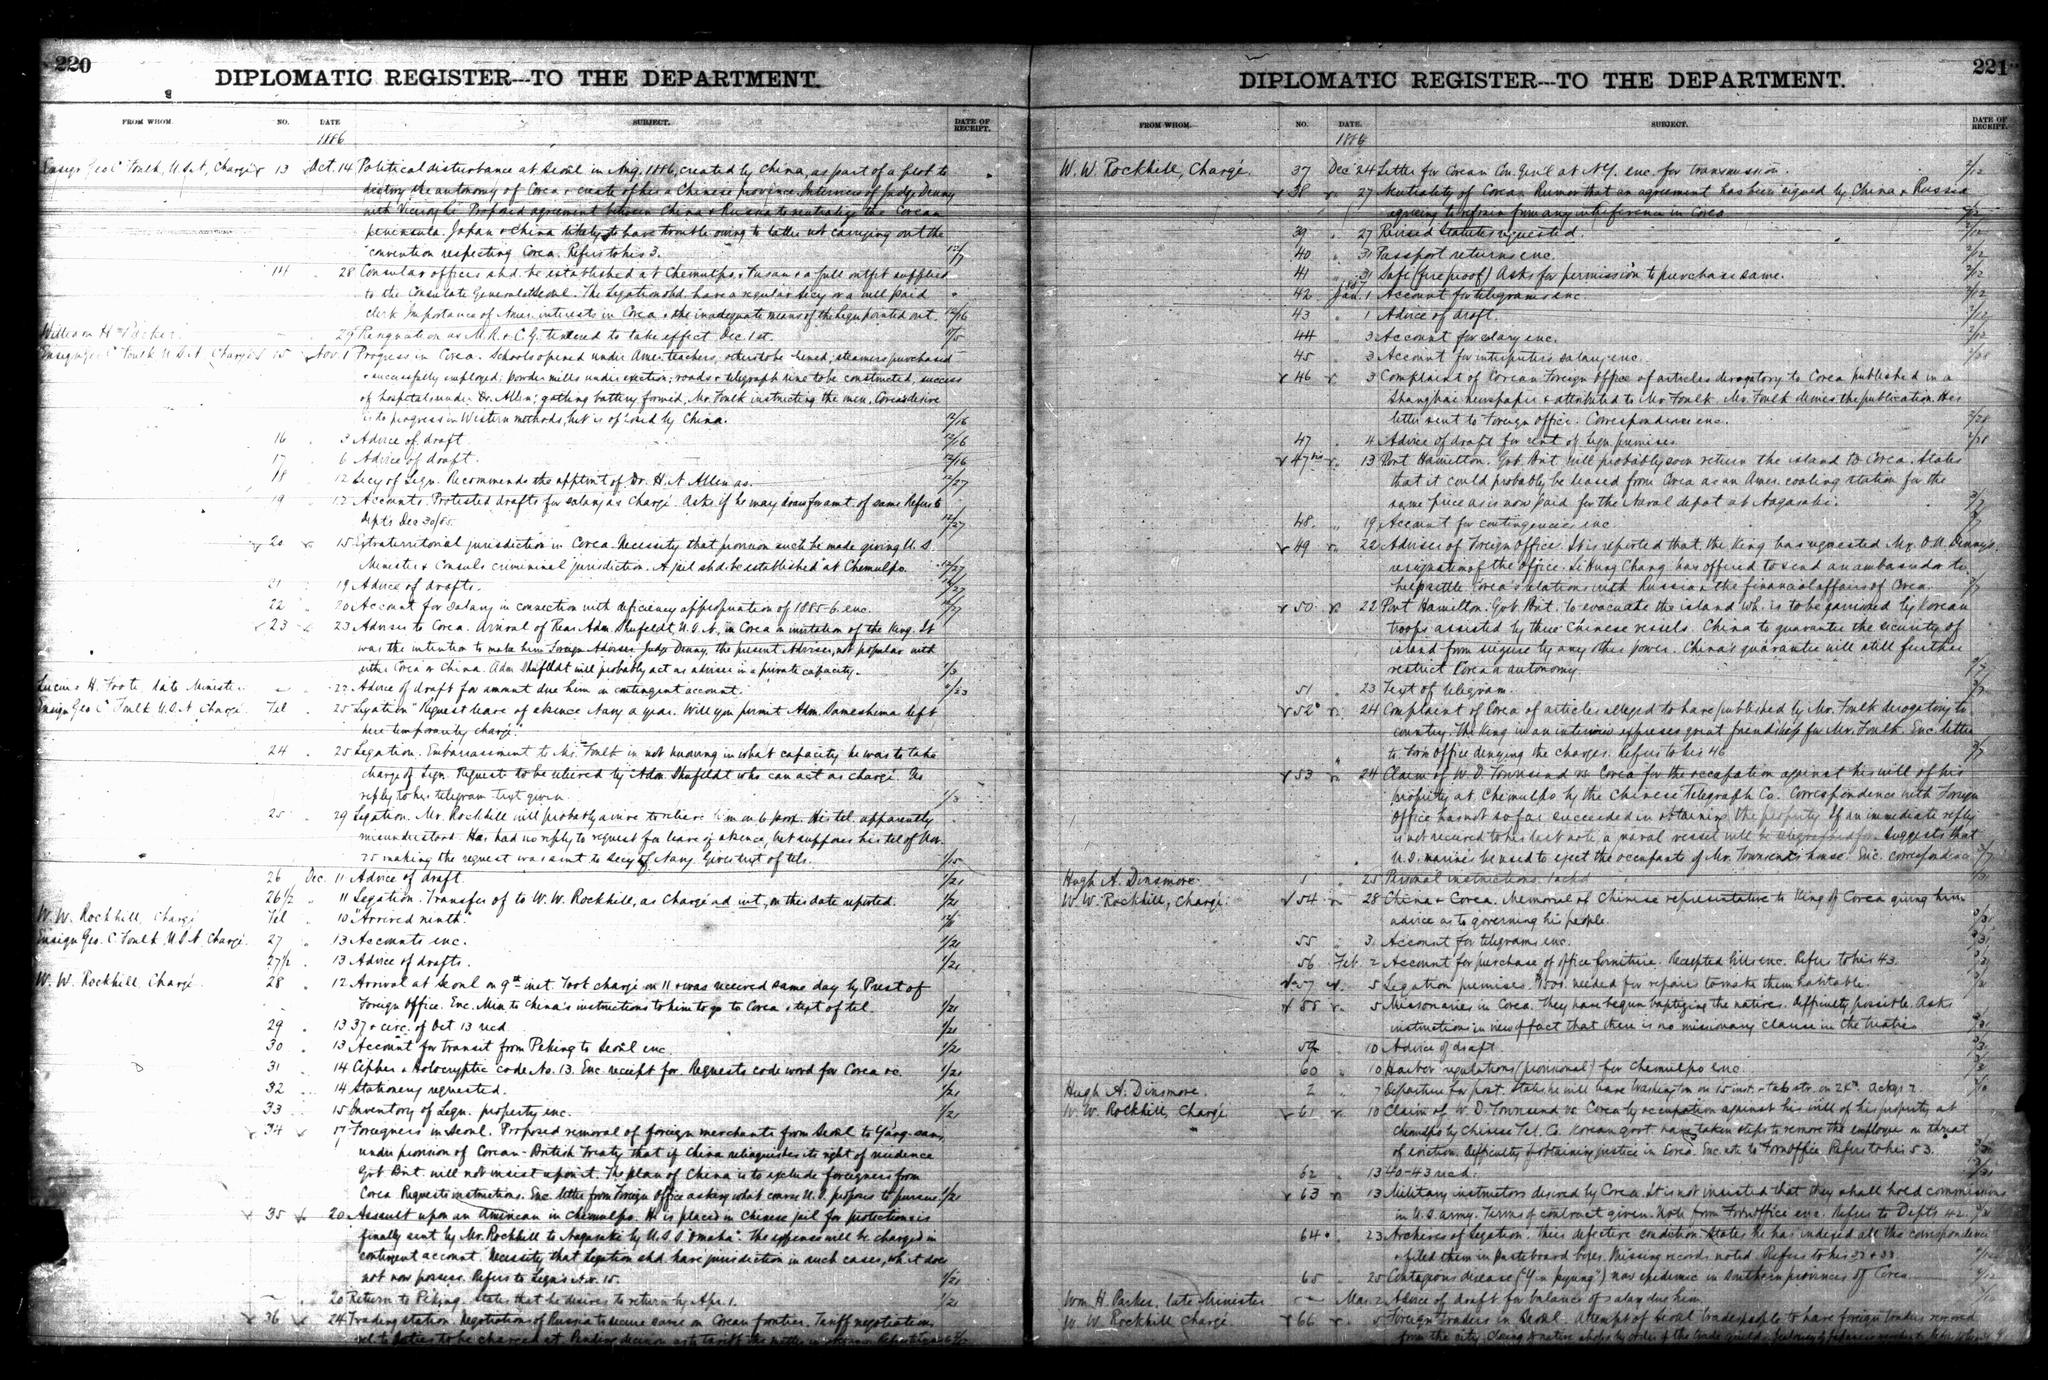 220
DIPLOMATIC REGISTER---TO THE DEPARTMENT.
FROM WHOM. NO. DATE SUBJECT. DATE OF RECEIPT.
1886
Ensign Geo C Foulk, U.S.N, Chargé 13 Oct. 14 Political disturbance at Seoul in Aug. 1886, created by China, as part of a plot to
destroy the autonomy of Corea & create of her a Chinese province. Interviews of Judge Denny
with Viceroy Li. Proposed agreement between China & Russia to neutralize the Corean
peninsula. Japan & China likely to have trouble owing to latter not carrying out the
convention respecting Corea. Refers to his 3. 12/7
14 " 28 Consular offices shd. be established at Chemulpo & Fusan & a full outfit supplied
to the Consulate General at Seoul. The Legation shd. have a regular Secy or a well paid
clerk. Importance of Amer. interests in Corea & the inadequate means of the Legn pointed out. 12/16
William H. Parker - 29 Resignation as M.R. & C.G. tendered to take effect Dec. 1st.
Ensign Geo C Foulk U.S.N. Chargé 15 Nov. 1 Progress in Corea. Schools opened under Amer. teachers, others to be hired; steamers purchased
& successfully employed; powder mills under erection; roads & telegraph line to be constructed, success
of hospitals under Dr. Allen; gatling battery formed, Mr. Foulk instructing the men. Corea's desire
is to progress in Western methods, but is opposed by China. 12/16
16 " 3 Advice of draft. 12/16
17 " 6 Advice of draft. 12/16
18 12 Secy of Legn. Recommends the apptmt of Dr. H. N. Allen as. 12/27
19 " 12 Accounts. Protested drafts for salary as Chargé. Asks if he may draw for amt. of same. Refers to
Dept's Dec 30/85. 12/27
20 15 Extraterritorial jurisdiction in Corea. Necessity that provision such be made giving U.S.
Minister & Consuls criminal jurisdiction. A jail shd. be established at Chemulpo. 12/27
21 " 19 Advice of drafts. 12/27
22 " 20 Account for salary in connection with deficiency appropriation of 1885-6 enc.
23 23 Adviser to Corea. Arrival of Rear Adm. Shufeldt, U.S.N., in Corea on invitation of the King. It
was the intention to make him Foreign Adviser. Judge Denny, the present Adviser, not popular with
either Corea or China. Adm Shufeldt will probably act as adviser in a private capacity. 1/3
Lucius H. Foote, late Minister - 22 Advice of draft for amount due him on contingent account.
Ensign Geo. C. Foulk U.S.N. Chargé Tel " 25 Legation "Request leave of absence Navy a year. Will you permit Adm. Dameshima left
here temporarily chargé."
24 " 25 Legation. Embarrassment to Mr. Foulk in not knowing in what capacity he was to take
charge of Legn. Request to be relieved by Adm. Shufeldt who can act as chargé. No
reply to his telegram text given. 1/3
25 " 29 Legation. Mr. Rockhill will probably arrive to relieve him on 6 prox. His tel. apparently
misunderstood. Has had no reply to request for leave of absence, but supposes his tel of Nov.
25 making the request was sent to Secy of Navy. Gives text of tels. 1/15
26 Dec. 11 Advice of draft. 1/21
26 1/2 " 11 Legation. Transfer of to W. W. Rockhill, as Chargé ad int, on this date reported. 1/21
W. W. Rockhill, Chargé Tel " 10 "Arrived ninth."
Ensign Geo. C. Foulk U.S.N. Chargé 27 " 13 Accounts enc. 1/21
27 1/2 " 13 Advice of drafts. 1/21
W. W. Rockhill, Chargé 28 " 12 Arrival at Seoul on 9th inst. Took charge on 11 & was received same day by Prest of
Foreign Office. Enc. Min to China's instructions to him to go to Corea & text of tel. 1/21
29 " 13 37 & circ. of Oct 13 recd. 1/21
30 " 13 Account for transit from Peking to Seoul enc. 1/21
31 " 14 Cipher & Holocryptic code No. 13. Enc receipt for. Requests code word for Corea &c. 1/21
32 14 Stationery requested. 1/21
33 15 Inventory of Legn. property enc. 1/21
34 17 Foreigners in Seoul. Proposed removal of foreign merchants from Seoul to
under provision of Corean-British treaty that if China relinquishes its right of residence
Govt Brit. will not insist upon it. The plan of China is to exclude foreigners from
Corea. Requests instructions. Enc. letter from Foreign Office asking what course U.S. proposes to pursue. 1/21
35 20 Assault upon an American in Chemulpo. He is placed in Chinese jail for protection & is
finally sent by Mr. Rockhill to Nagasaki by U.S.S. "Omaha". The expenses will be charged in
contingent account. Necessity that Legation shd. have jurisdiction in such cases, wh. it does
not now possess. Refers to Legn's No. 15. 1/21
20 Return to Peking. States that he desires to return by Apr. 1. 1/21
36 24 Trading station. Negotiations of Russia to secure same on Corean frontier. Tariff negotiations
221
DIPLOMATIC REGISTER---TO THE DEPARTMENT.
FROM WHOM. NO. DATE. SUBJECT. DATE OF RECEIPT.
1886
W. W. Rockhill, Chargé. 37 Dec 24 Letter for Corean Con. Gen'l at N.Y. enc. for transmission. 2/12
38 27 Neutrality of Corea. Rumor that an agreement has been signed by China & Russia
agreeing to refrain from any interference in Corea
39 " 27 Revised Statutes requested. 2/12
40 " 31 Passport returns enc. 2/12
41 " 31 Safe (fire proof) Asks for permission to purchase same. 2/12
42 1887 Jan. 1 Account for telegrams enc. 2/12
43 1 Advice of draft. 2/12
44 3 Account for salary enc. 2/12
45 " 3 Account for interpreter's salary enc.
46 3 Complaint of Corean Foreign Office of articles derogatory to Corea published in a
Shanghai newspaper & attributed to Mr. Foulk. Mr. Foulk denies the publication. His
letter sent to Foreign Office. Correspondence enc. 2/28
47 " 4 Advice of draft for rent of Legn. premises. 2/28
47 bis 13 Port Hamilton. Govt. Brit. will probably soon return the island to Corea. States
that it could probably be leased from Corea as an Amer. coaling station for the
same price as is now paid for the Naval depot at Nagasaki. 3/7
48. " 19 Account for contingencies enc.
49 22 Adviser of Foreign Office. It is reported that the King has requested Mr. O. N. Denny's
resignation of the office. Li Hung Chang has offered to send an ambassador to
help settle Corea's relations with Russia & the financial affairs of Corea. 3/7
50 22 Port Hamilton. Govt. Brit. to evacuate the island wh. is to be garrisoned by Corean
troops assisted by three Chinese vessels. China to guarantee the security of
island from seizure by any other power. China's guarantee will still further
restrict Corea's autonomy. 3/7
51 " 23 Text of telegram. 3/7
52 24 Complaint of Corea of articles alleged to have published by Mr. Foulk derogatory to
country. The King in an interview expresses great friendship for Mr. Foulk. Enc. letter
to Forn Office denying the charges. Refers to his 46 3/7
53 24 Claim of W. D. Townsend vs. Corea for the occupation against his will of his
property at Chemulpo by the Chinese Telegraph Co. Correspondence with Foreign
Office has not so far succeeded in obtaining the property. If an immediate reply
is not received to his last note, a naval vessel will be telegraphed for. Suggests that
U.S. marines be used to eject the occupants of Mr. Townsend's house. Enc. correspondence 3/7
Hugh A. Dinsmore. 1 " 25 Personal instructions. Ackd. 1/31
W. W. Rockhill, Chargé. 54 28 China & Corea. Memorial of Chinese representative to King of Corea giving him
advice as to governing his people. 3/31
55 31 Account for telegrams enc. 3/31
56 Feb. 2 Account for purchase of office furniture. Receipted bills enc. Refers to his 43. 3/31
57 5 Legation premises. needed for repairs to make them habitable.
58 5 Missionaries in Corea. They have begun baptizing the natives. Difficulty possible. Asks
instructions in view of fact that there is no missionary clause in the treaties 3/31
59 " 10 Advice of draft. 3/31
60 " 10 Harbor regulations (provisional) for Chemulpo enc.
Hugh A. Dinsmore. 2 " 7 Departure for post. States he will leave Washington on 15 inst. & take str. on 24th.
W. W. Rockhill, Chargé 61 10 Claim of W. D. Townsend vs. Corea by occupation against his will of his property at
Chemulpo by Chinese Tel. Co. Korean govt. have taken steps to remove the employee on threat
of eviction. Difficulty of obtaining justice in Corea. Enc. note to Forn Office. Refers to his 53.
62 13 40-43 recd. 3/31
63 13 Military instructors desired by Corea. It is not insisted that they shall hold commissions
in U.S. army. Terms of contract given. Note from Forn Office enc. Refers to Dept's 42.
64 23 Archives of Legation. Their defective condition. States he has indexed all the correspondence
& filed them in Pasteboard boxes. Missing records noted. Refers to his 33
65 " 25 Contagious disease now epidemic in Southern provinces of Corea
Wm H. Parker, late Minister -- Mar. 2 Advice of draft for balance of salary due him.
W. W. Rockhill Chargé. 66 5 Foreign Traders in Seoul. Attempt of Seoul tradespeople to have foreign traders removed
from the city. Closing of native shops by order of the trade guilds.